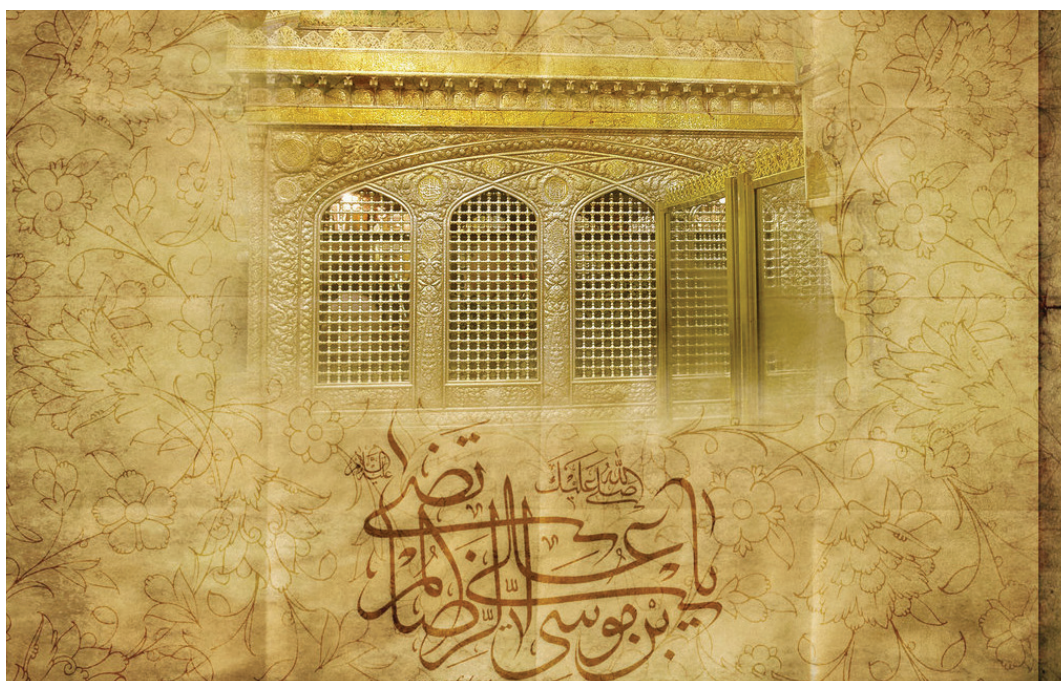 صلی الله علیک
یا علی بن موسی الرضا المرتضی
علیه السلام